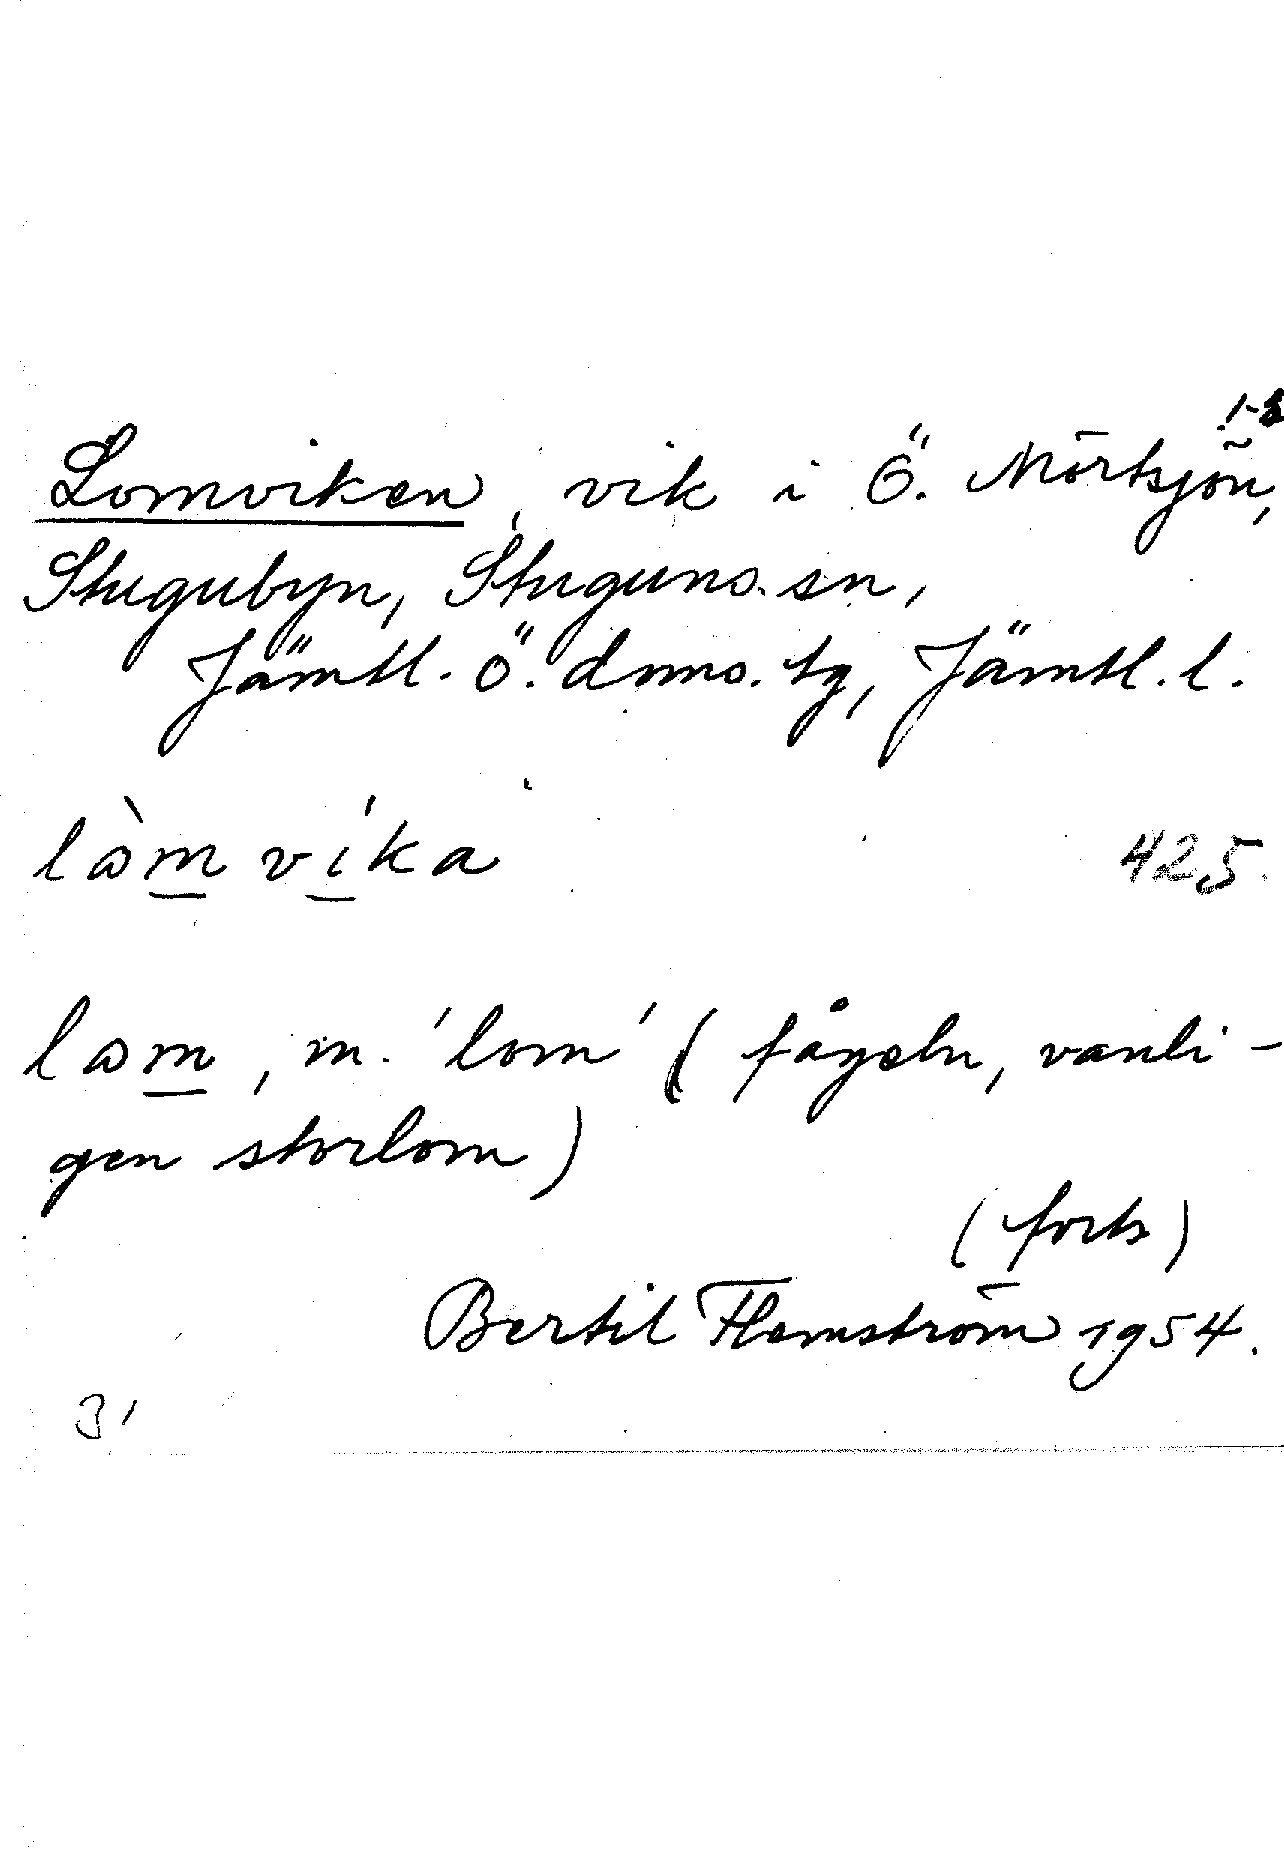 1-2
Lomviken, vik i Ö. Mörtsjön,
Stugubyn, Stuguns. sn,
Jämtl. Ö. dmns. tg, Jämtl. l.
lə̀m víka 425.
ləm, m. 'lom' (fågeln, vanli-
gen storlom)
(forts)
Bertil Flemström 1954.
31